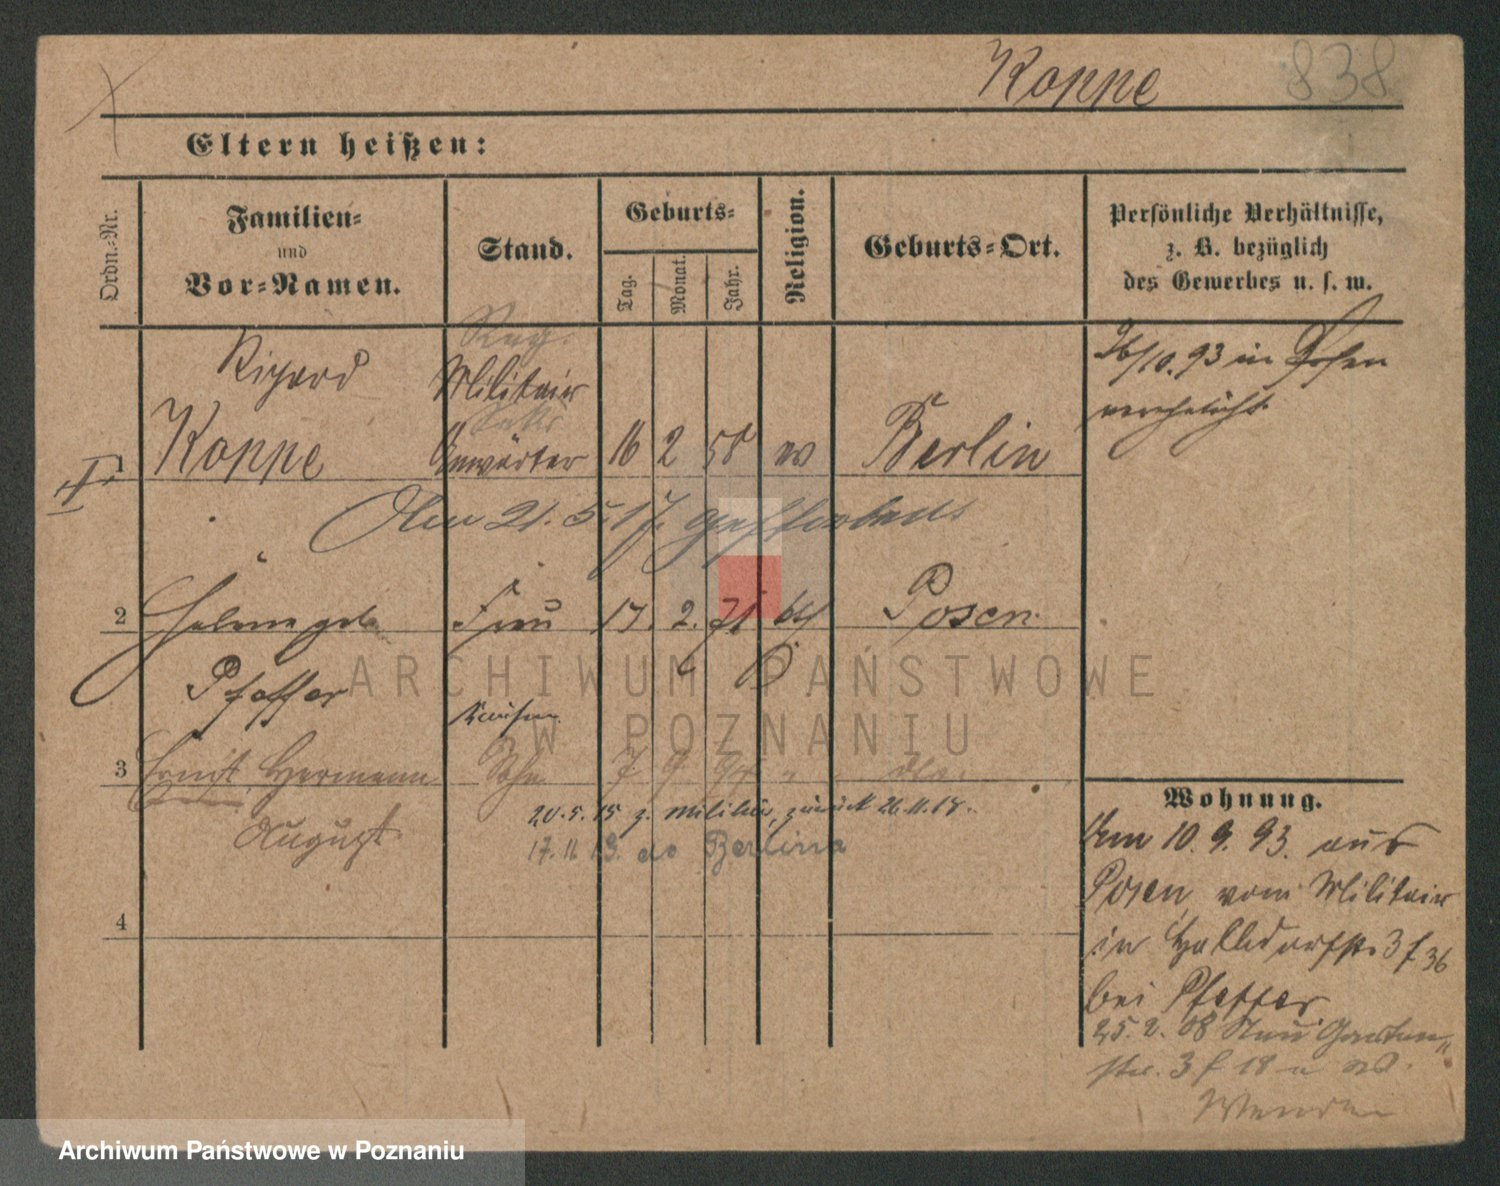 Koppe 838
Eltern heißen:
Ordn.-Nr.
Familien-
und
Vor-Namen.
Stand.
Geburts-
Tag.
Monat.
Jahr.
Religion.
Geburts-Ort.
Persönliche Verhältnisse,
z. B. bezüglich
des Gewerbes u. s. w.
Reg.
Rihard
Militair
26/10.93 in Posen
verehelicht
1 Koppe Anwärter 16 2 58 ev Berlin
Am 21.5.17. gestorben
2 Helene geb. Frau 17. 2. 71 Posen.
Pfeffer
3 Ernst Hermann Sohn 7 9 94
August
20.5.15 z. Militär, zurück 26.11.18.
17.11.19. do Berlina
4
Wohnung.
Am 10.9.93. aus
Posen vom Militair
in Halldorfstr. 3 f 36
bei Pfeffer
25.2.08 Neue Garten-
str. 3 f 18
ARCHIWUM PAŃSTWOWE
W POZNANIU
Archiwum Państwowe w Poznaniu